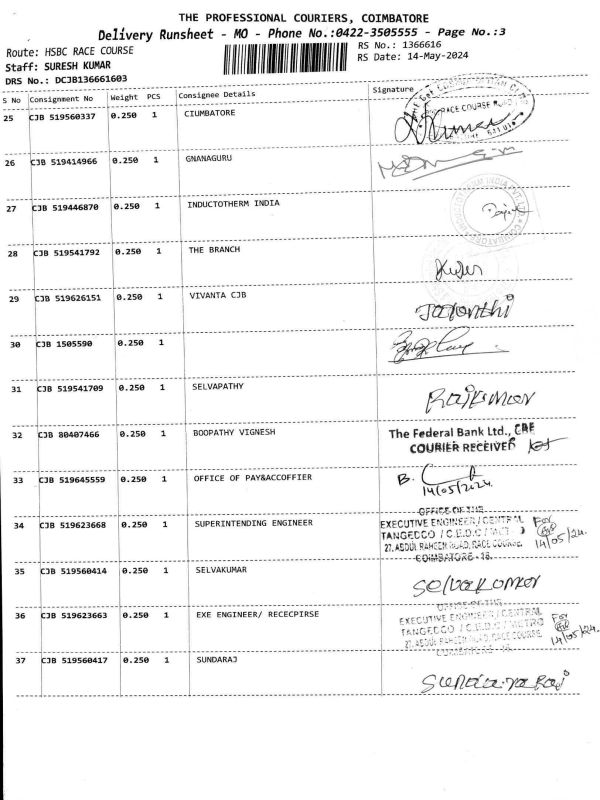 THE PROFESSIONAL COURIERS, COIMBATORE
Delivery Runsheet - MO - Phone No.:0422-3505555 - Page No.:3
Route: HSBC RACE COURSE
RS No.: 1366616
Staff: SURESH KUMAR
RS Date: 14-May-2024
DRS No.: DCJB136661603
S No Consignment No Weight PCS Consignee Details Signature
25 CJB 519560337 0.250 1 CIUMBATORE
RACE COURSE
26 CJB 519414966 0.250 1 GNANAGURU
27 CJB 519446870 0.250 1 INDUCTOTHERM INDIA
28 CJB 519541792 0.250 1 THE BRANCH
29 CJB 519626151 0.250 1 VIVANTA CJB Jayanthi
30 CJB 1505590 0.250 1
31 CJB 519541709 0.250 1 SELVAPATHY Rajkumar
32 CJB 80407466 0.250 1 BOOPATHY VIGNESH The Federal Bank Ltd.,
COURIER RECEIVED
33 CJB 519645559 0.250 1 OFFICE OF PAY&ACCOFFIER B.
14/05/2024.
OFFICE OF THE
34 CJB 519623668 0.250 1 SUPERINTENDING ENGINEER EXECUTIVE ENGINEER / CENTRAL For
TANGEDCO / C.E.D.C /
27, ABDUL RAHEEM ROAD, RACE COURSE, 14/05/24.
COIMBATORE - 18.
35 CJB 519560414 0.250 1 SELVAKUMAR Selvakumar
OFFICE OF THE
36 CJB 519623663 0.250 1 EXE ENGINEER/ RECECPIRSE EXECUTIVE ENGINEER / CENTRAL For
TANGEDCO / C.E.D.C / METRO
27, ABDUL RAHEEM ROAD, RACE COURSE 14/05/24.
COIMBATORE - 18.
37 CJB 519560417 0.250 1 SUNDARAJ